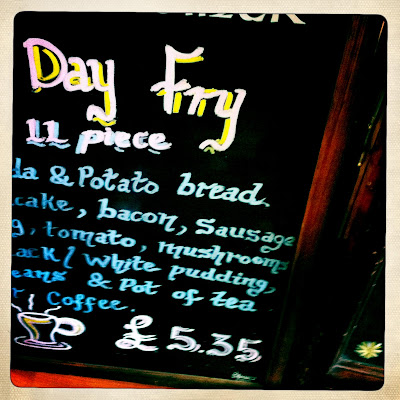 Day Fry
11 piece
da & Potato bread.
cake, bacon, Sausage
g, tomato, mushrooms
ack/White pudding,
eans & Pot of tea
r Coffee.
£5.35